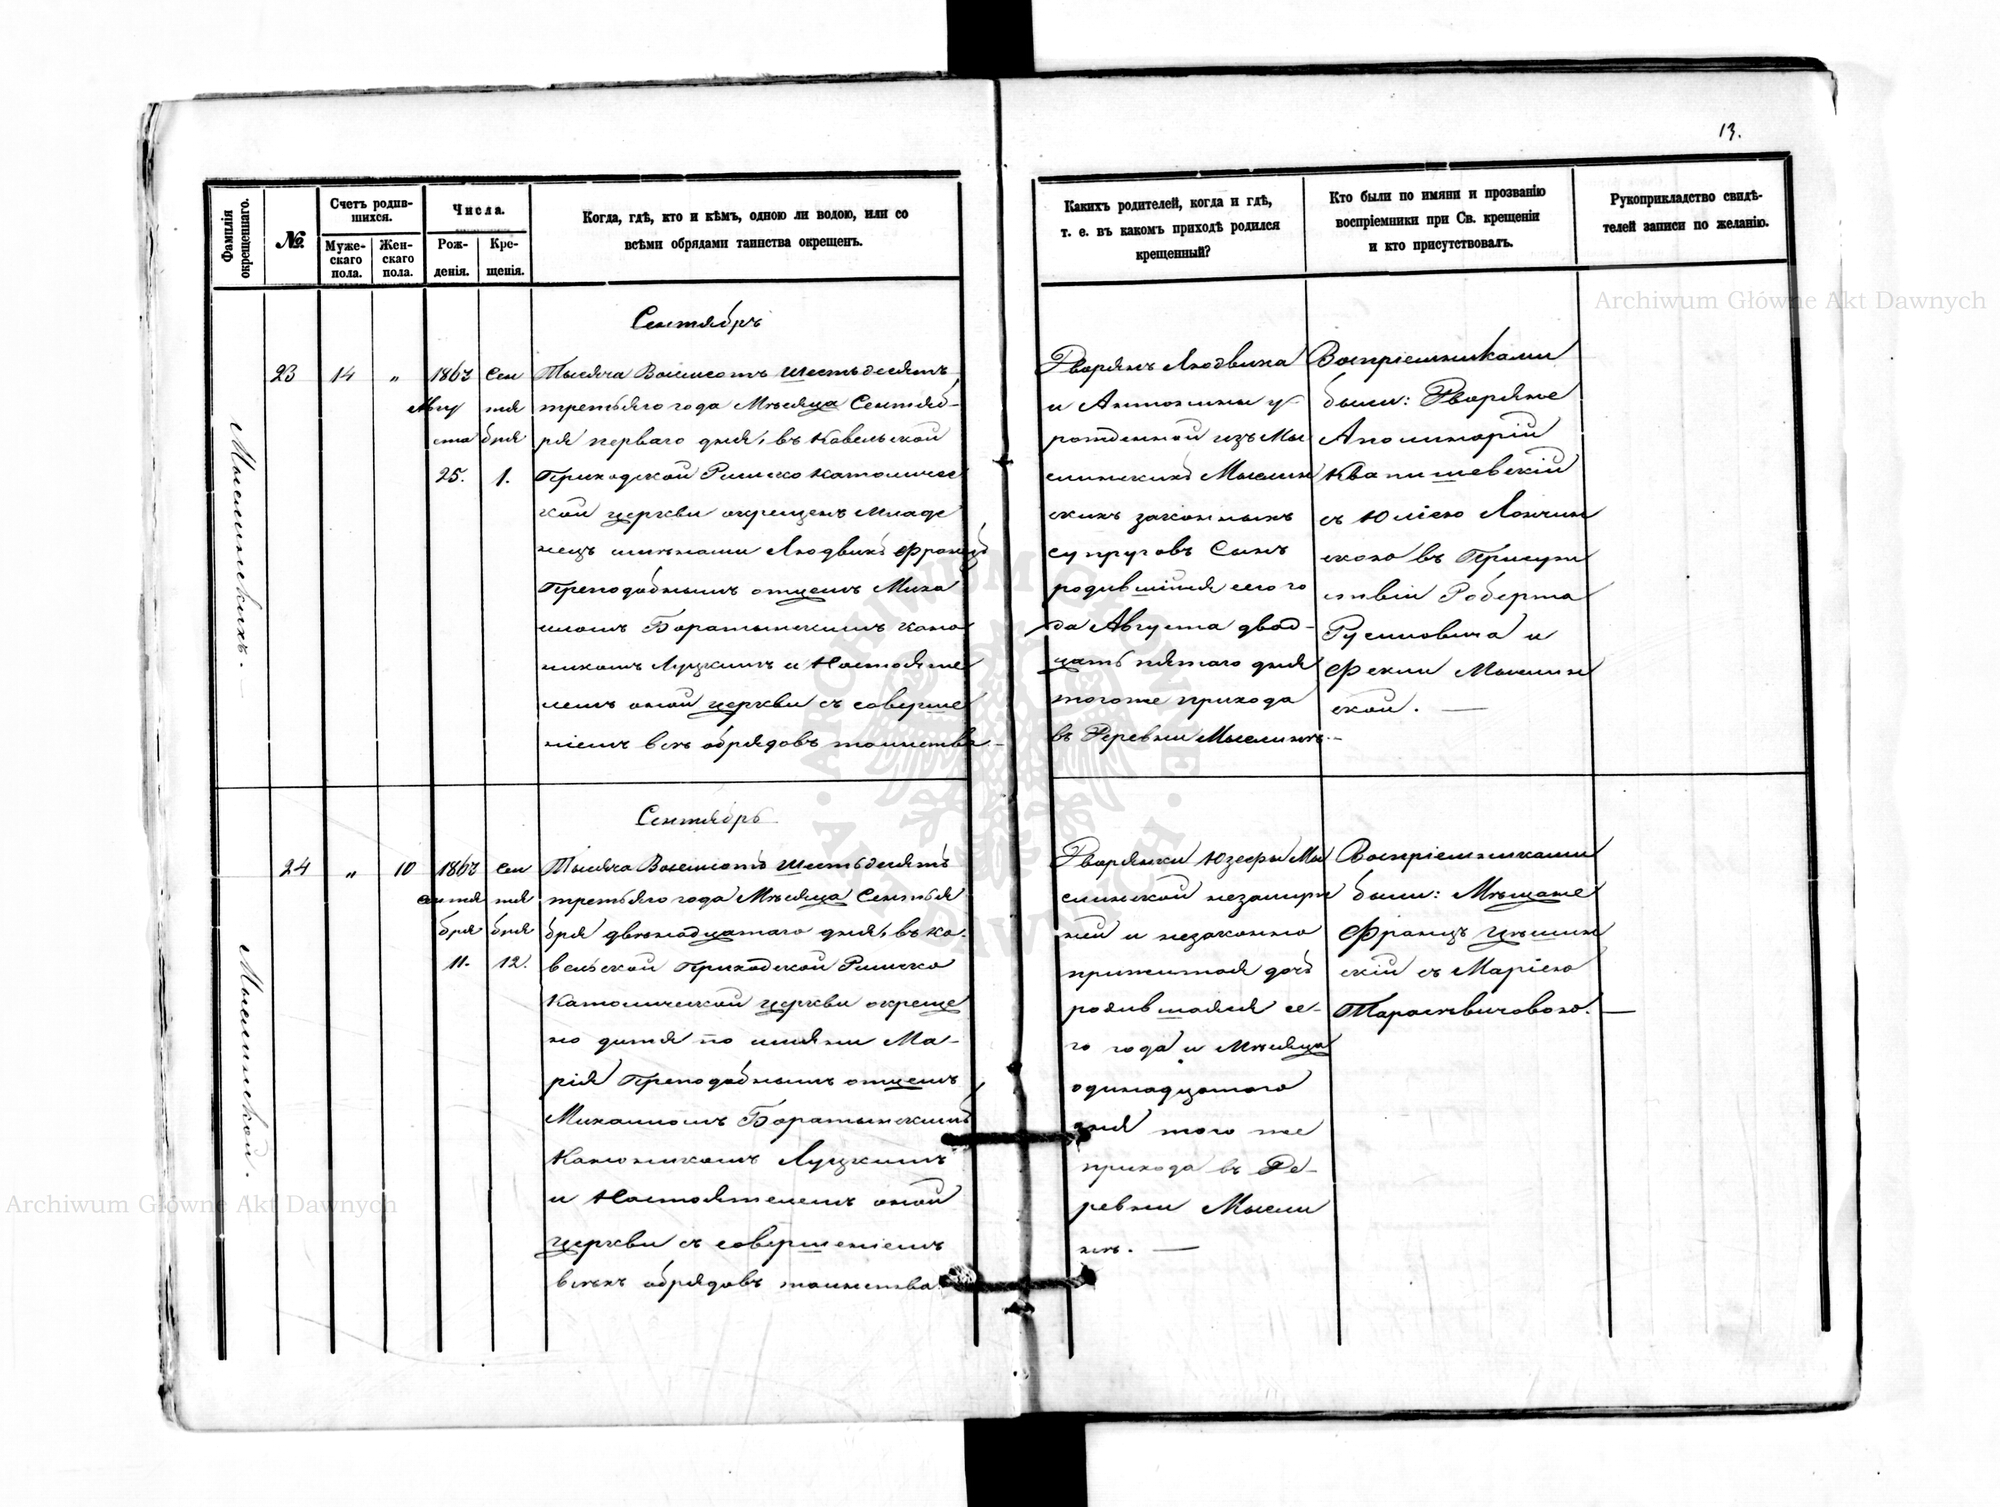 13.
Фамилія окрещеннаго.
№.
Счетъ родив-
шихся.
Муже-
скаго
пола.
Жен-
скаго
пола.
Числа.
Рож-
денія.
Кре-
щенія.
Когда, гдѣ, кто и кѣмъ, одною ли водою, или со
всѣми обрядами таинства окрещенъ.
Какихъ родителей, когда и гдѣ,
т. е. въ какомъ приходѣ родился
крещенный?
Кто были по имяни и прозванію
воспріемники при Св. крещеніи
и кто присутствовалъ.
Рукоприкладство свидѣ-
телей записи по желанію.
Мыслинскихъ.
23
14
"
1863
Авгу
ста
25.
Сен
тя
бря
1.
Сентябрь
Тысяча Восемсотъ шестьдесятъ
третьяго года Мѣсяца Сентяб-
ря перваго дня, въ Ковельской
Приходской Римско Католичес
кой церкви окрещенъ младе
нецъ имѣнами Людвикъ Францъ
Преподобнымъ отцемъ Миха
иломъ Баратынскимъ Кано
никомъ Луцкимъ и Настояте
лемъ оной церкви съ соверше
ніемъ всѣхъ обрядовъ таинства
Дворянъ Людвика
и Антонины у
рожденной изъ Мы
слинскихъ Мыслин
скихъ законныхъ
супруговъ Сынъ
родившійся сего го
да Августа двад-
цать пятаго дня
тогоже прихода
въ Деревни Мыслинѣ.
Воспріемниками
были: Дворяне
Аполинарій
Квапишевскій
съ Юліею Лончин
скою въ Присут
ствіи Роберта
Русиновича и
Феклы Мыслин
ской.
Мыслинской.
24
"
10
1863
Сентя
бря
11.
Сен
тя
бря
12.
Сентябрь
Тысяча Восемсотъ шестьдесятъ
третьяго года Мѣсяца Сентя
бря двѣнадцатаго дня, въ Ко-
вельской Приходской Римско
Католической церкви окреще
но дитя по имяни Ма-
рія Преподобнымъ отцемъ
Михаиломъ Баратынскимъ
Каноникомъ Луцкимъ
и Настоятелемъ оной
церкви съ совершеніемъ
всѣхъ обрядовъ таинства
Дворянки Юзефы Мы
слинской незамуж
ней и незаконно
прижитая дочь
родившаяся се-
го года и Мѣсяца
одинадцатаго
дня того же
прихода въ Де-
ревни Мысли
нѣ.
Воспріемниками
были: Мѣщане
Францъ Цѣшин
скій съ Маріею
Тарасевичовою.
Archiwum Główne Akt Dawnych
Archiwum Główne Akt Dawnych
ARCHIWUM GŁÓWNE AKT DAWNYCH